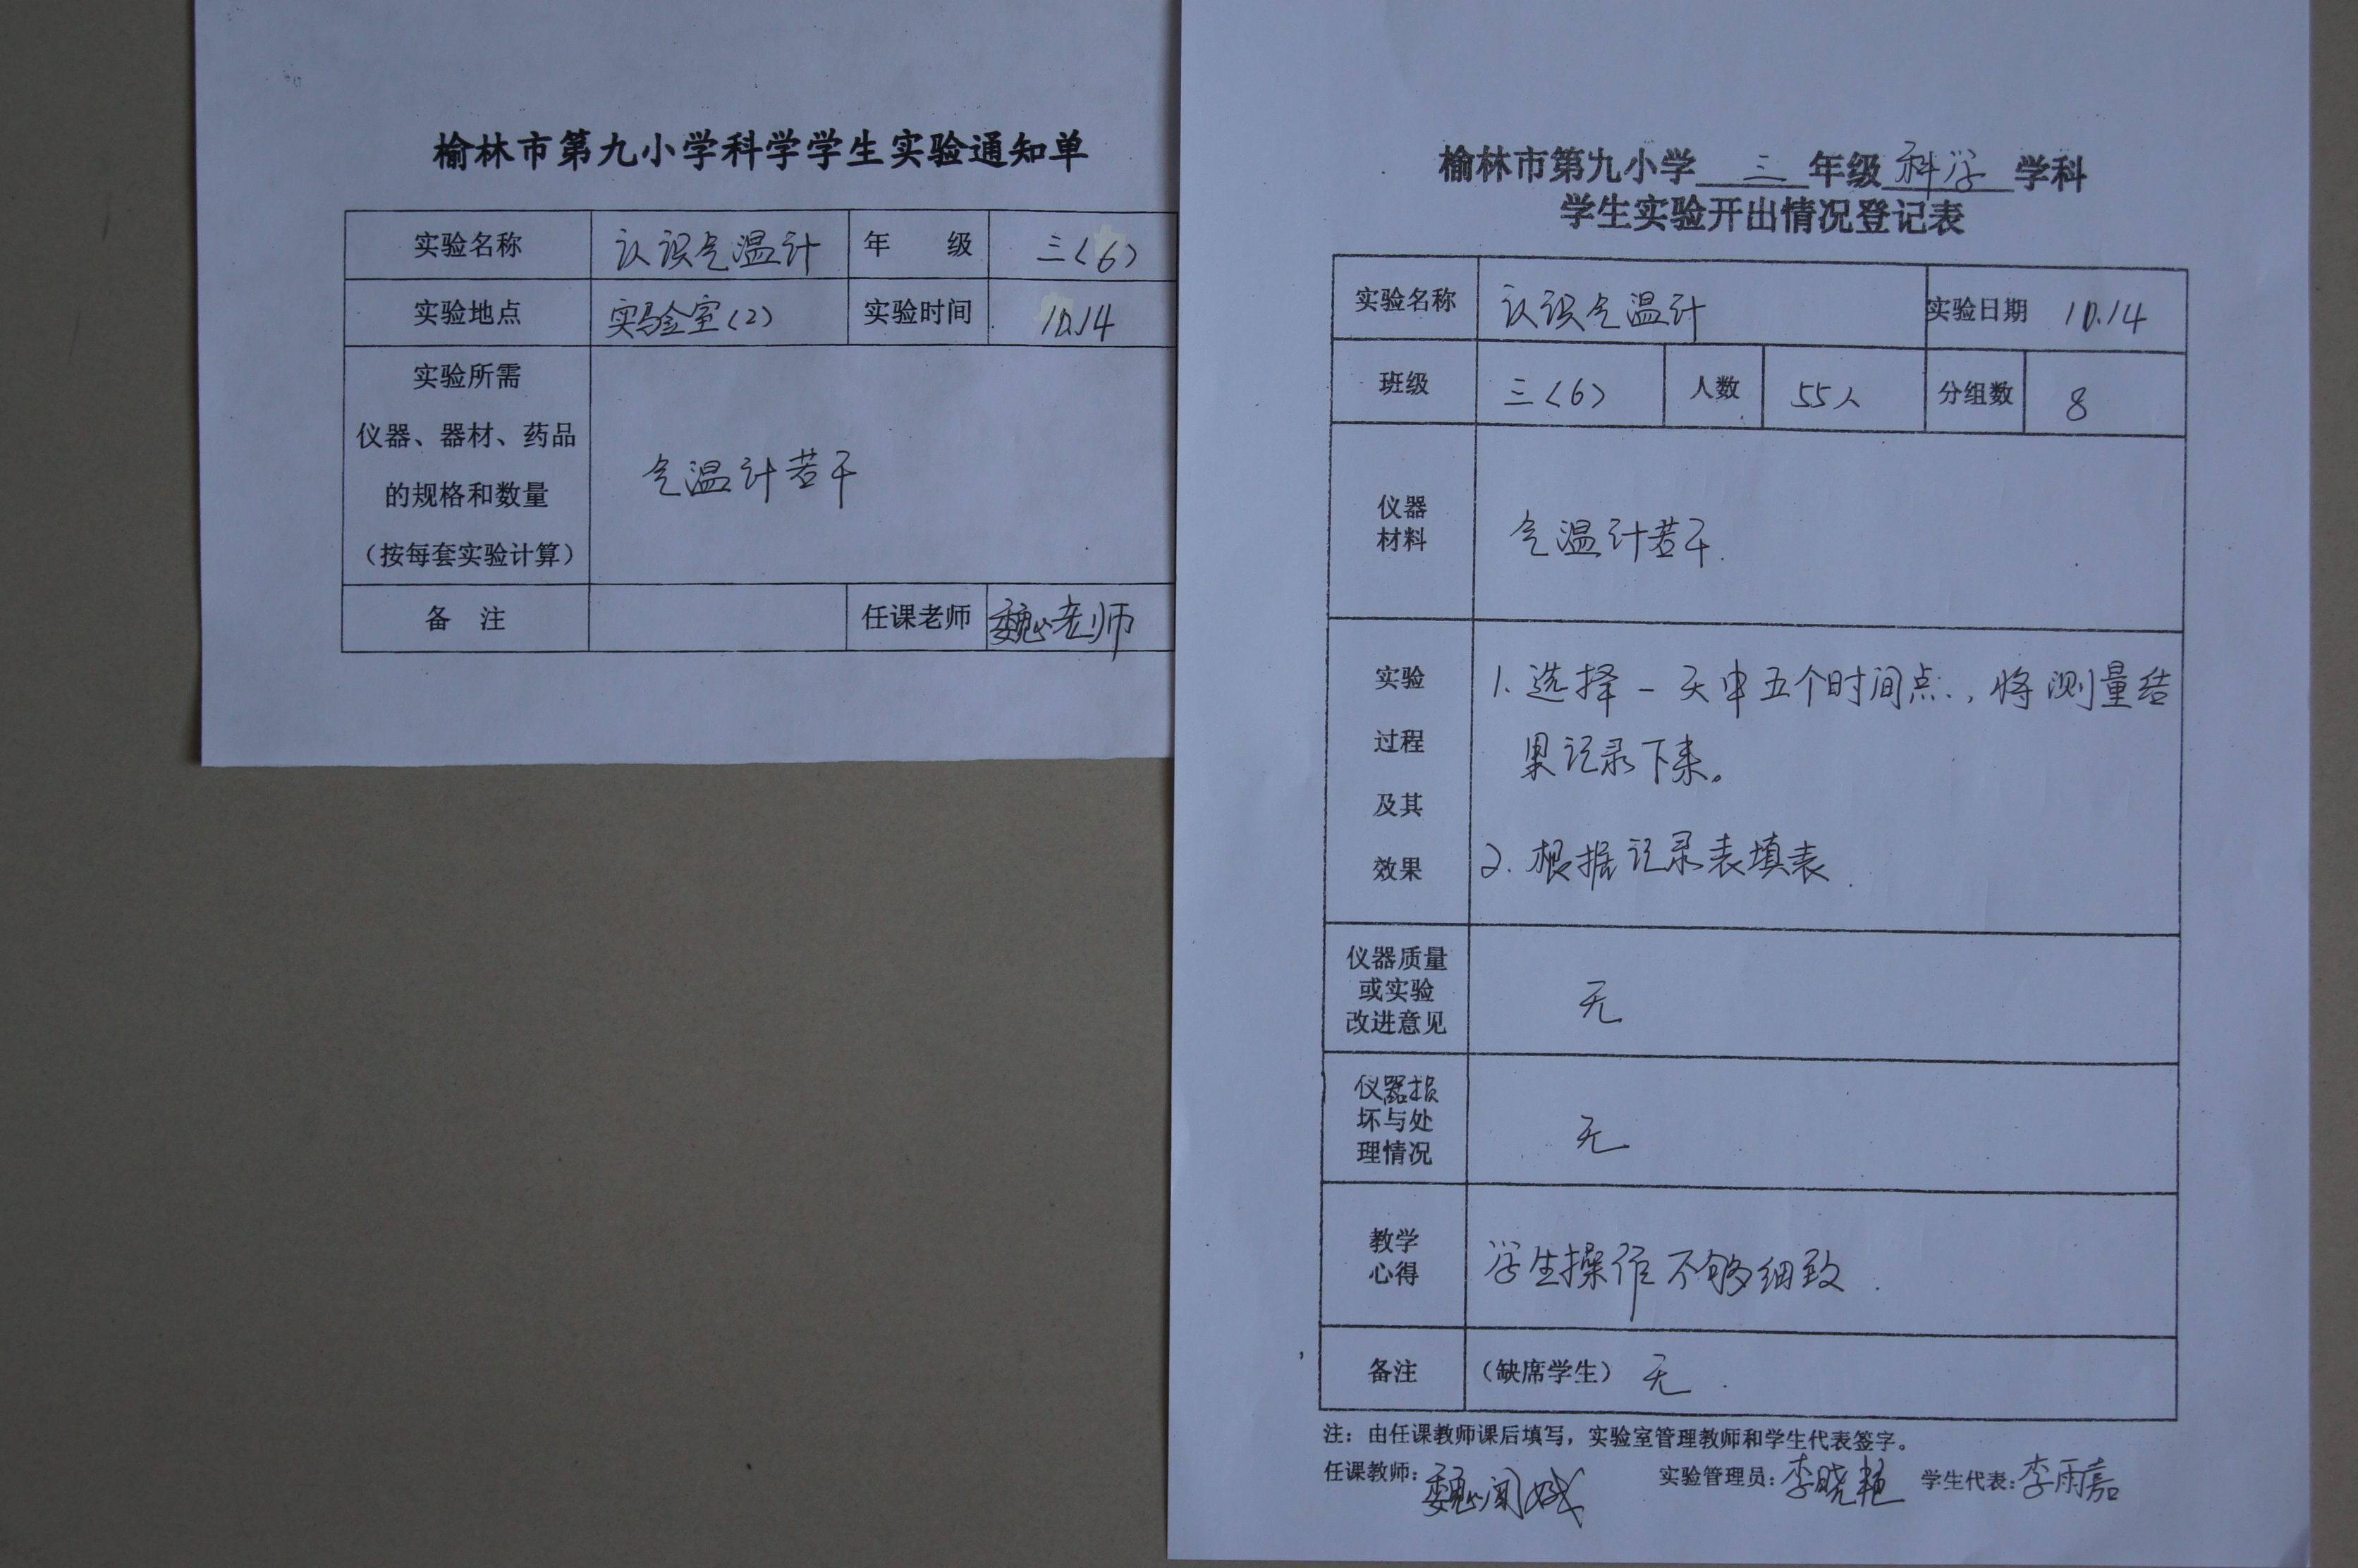 榆林市第九小学科学学生实验通知单
实验名称 认识气温计 年 级 三(6)
实验地点 实验室(2) 实验时间 10.14
实验所需
仪器、器材、药品
的规格和数量
(按每套实验计算)
气温计若干
备 注 任课老师 魏老师
榆林市第九小学 三 年级 科学 学科
学生实验开出情况登记表
实验名称 认识气温计 实验日期 10.14
班级 三(6) 人数 55人 分组数 8
仪器
材料
气温计若干.
实验
过程
及其
效果
1.选择一天中五个时间点,将测量结
果记录下来。
2.根据记录表填表.
仪器质量
或实验
改进意见
无
仪器损
坏与处
理情况
无
教学
心得
学生操作不够细致.
备注 (缺席学生) 无.
注:由任课教师课后填写,实验室管理教师和学生代表签字。
任课教师: 魏 实验管理员:李晓艳 学生代表:李雨嘉